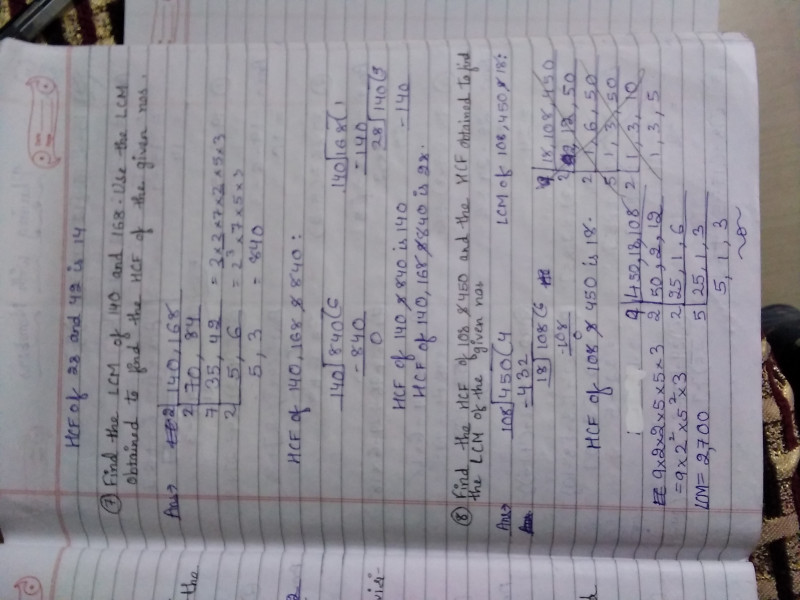 HCF of 28 and 42 is 14
⑦ Find the LCM of 140 and 168. Use the LCM
obtained to find the HCF of the given nos.
Ans→
2 | 140, 168
2 | 70, 84
7 | 35, 42
2 | 5, 6
5, 3
= 2×2×7×2×5×3
= 2³×7×5×3
= 840
HCF of 140, 168 & 840:
140 | 840 ( 6
- 840
0
140 | 168 ( 1
- 140
28 | 140 ( 5
- 140
HCF of 140 & 840 is 140
HCF of 140, 168 & 840 is 28.
⑧ Find the HCF of 108 & 450 and the HCF obtained to find
the LCM of the given nos
Ans→
108 | 450 ( 4
- 432
18 | 108 ( 6
- 108
0
HCF of 108 & 450 is 18.
LCM of 108, 450 & 18:
9 | 18, 108, 450
2 | 2, 12, 50
2 | 1, 6, 50
5 | 1, 3, 50
2 | 1, 3, 10
1, 3, 5
9 | 450, 18, 108
2 | 50, 2, 12
2 | 25, 1, 6
5 | 25, 1, 3
5, 1, 3
9×2×2×5×5×3
= 9×2²×5²×3
LCM = 2,700
the